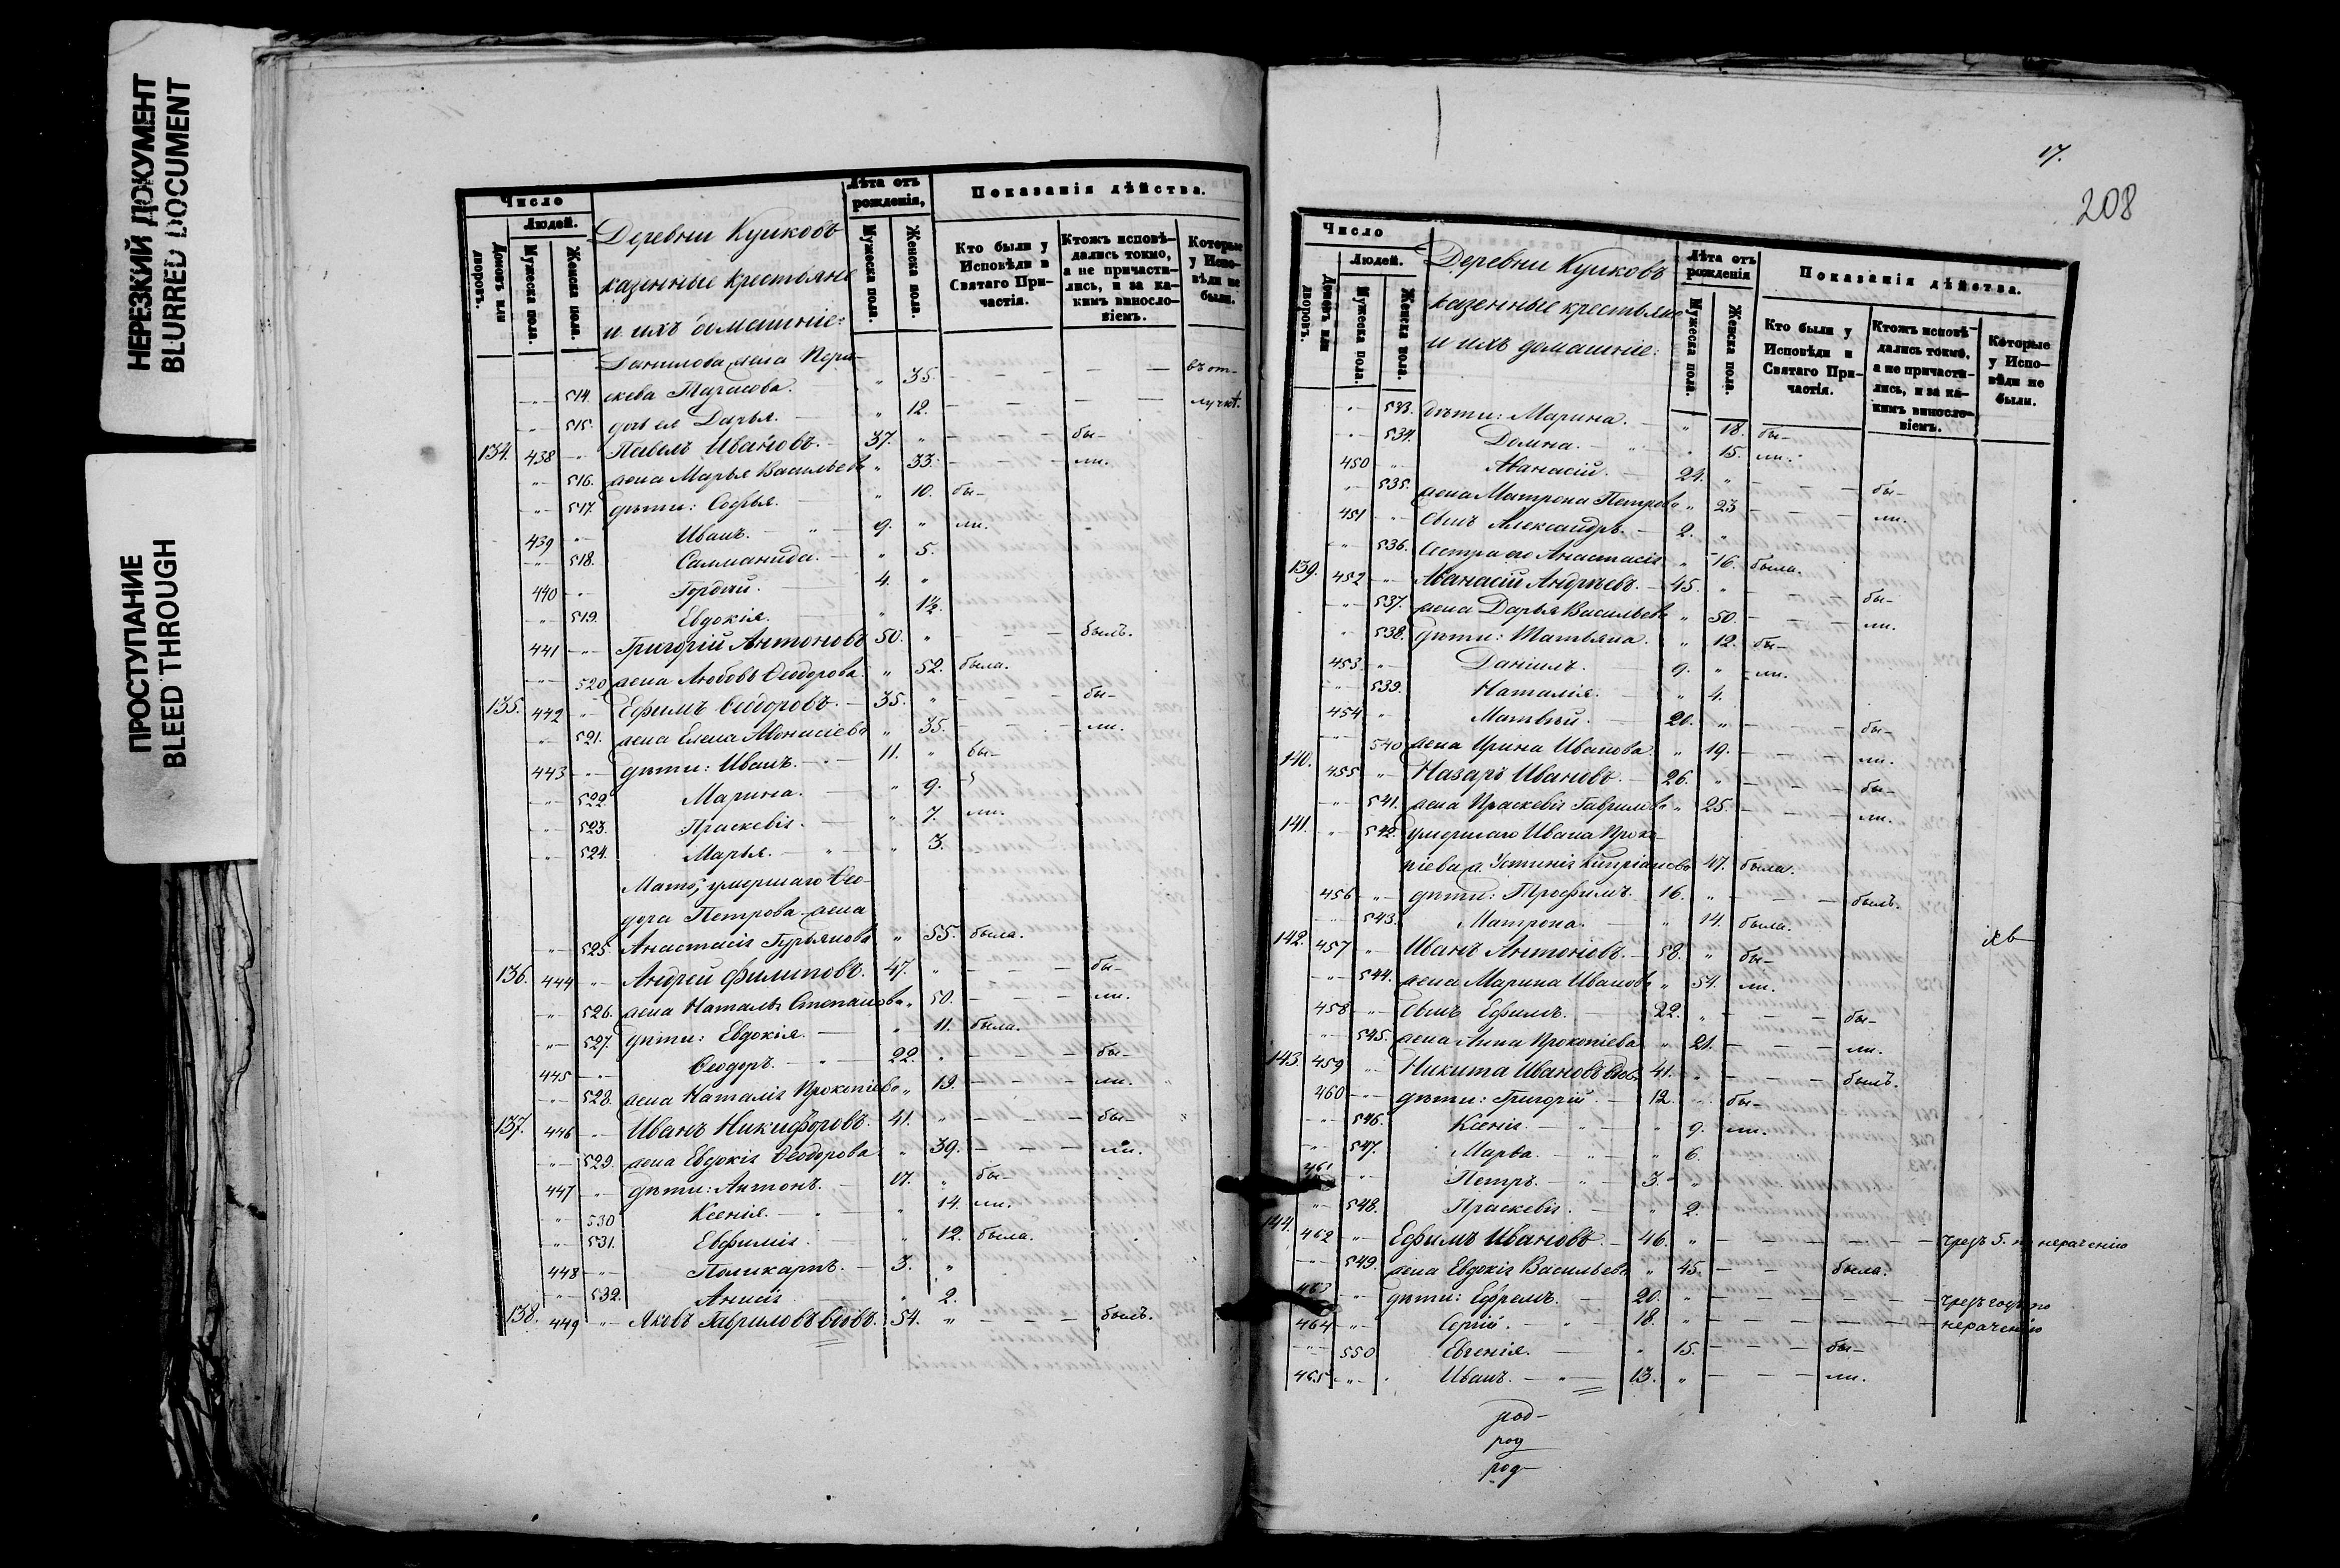 НЕРЕЗКИЙ ДОКУМЕНТ
BLURRED DOCUMENT
ПРОСТУПАНИЕ
BLEED THROUGH
Число
Людей.
Домовъ или дворовъ.
Мужеска пола.
Женска пола.
Деревни Куликовъ
казенные крестьяне
и ихъ домашніе:
Лѣта отъ рожденія,
Мужеска пола.
Женска пола.
Показанія дѣйства.
Кто были у Исповѣди и Святаго Причастія.
Ктожъ исповѣдались токмо, а не причастились, и за какимъ винословіемъ.
Которые у Исповѣди не были.
Данилова жена Пора-
" 514. скева Тарасова. " 35. въ от-
" 515. дочь ея Дарья. " 12. лучкѣ.
134. 438 " Павелъ Ивановъ. 37. " бы-
" 516. жена Марья Васильева " 33. ли.
" 517. дѣти: Софья. " 10. бы-
439 " Иванъ. 9. " ли.
" 518. Саломанида. " 5.
440 " Гордѣй. 4. "
" 519. Евдокія. " 1½.
441 " Григорій Антоновъ 50. " былъ.
" 520 жена Любовь Ѳеодорова " 52. была.
135. 442 " Ефимъ Ѳеодоровъ. 35. " бы-
" 521. жена Елена Аѳонасіева " 35. ли.
443 " дѣти: Иванъ. 11. " бы-
" 522. Марина. " 9.
" 523. Праскевія. " 7. ли.
" 524. Марья. " 3.
Мать, умершаго Ѳео-
дора Петрова жена
" 525. Анастасія Гурьянова " 55. была.
136. 444 " Андрей Филиповъ. 47. " бы-
" 526. жена Наталья Степанова " 50. ли.
" 527. дѣти: Евдокія. " 11. была.
445 " Ѳеодоръ. 22. " бы-
" 528. жена Наталія Прокопіева " 19. ли.
137. 446 " Иванъ Никифоровъ. 41. " бы-
" 529. жена Евдокія Ѳеодорова " 39. ли.
447 " дѣти: Антонъ. 17. " бы-
" 530 Ксенія. " 14. ли.
" 531. Евфимія. " 12. была.
448 " Поликарпъ. 3. "
" 532. Анисія " 2.
138. 449 " Яковъ Гавриловъ вдовъ. 54. " былъ.
17.
208
Число
Людей.
Домовъ или дворовъ.
Мужеска пола.
Женска пола.
Деревни Куликовъ
казенные крестьяне
и ихъ домашніе:
Лѣта отъ рожденія
Мужеска пола.
Женска пола.
Показанія дѣйства.
Кто были у Исповѣди и Святаго Причастія.
Ктожъ исповѣдались токмо, а не причастились, и за какимъ винословіемъ.
Которые у Исповѣди не были.
" 533. дѣти: Марина. " 18. бы-
" 534. Домна. " 15. ли.
450 " Аѳанасій. 24. " бы-
" 535. жена Матрона Петрова " 23 ли.
451 " сынъ Александръ. 2. "
" 536. Сестра его Анастасія " 16. была.
139. 452 " Аѳанасій Андрѣевъ. 45. " бы-
" 537. жена Дарья Васильева " 50. ли.
" 538. дѣти: Татьяна. " 12. бы-
453 " Даніилъ. 9. " ли.
" 539. Наталія. " 4.
454 " Матвѣй. 20. " бы-
" 540 жена Ирина Иванова " 19. ли.
140. 455 " Назаръ Ивановъ. 26. " бы-
" 541. жена Праскевія Гаврилова " 25. ли.
141. " 542. умершаго Ивана Проко-
піева ж. Устинія Кипріанова 47. была.
456 " дѣти: Трофимъ. 16. " былъ.
" 543. Матрона. " 14. была.
142. 457 " Иванъ Антоніевъ. 58. " бы-
" 544. жена Марина Иванова " 54. ли.
458 " сынъ Ефимъ. 22. " бы-
" 545. жена Анна Прокопіева " 21. ли.
143. 459 " Никита Ивановъ вдовъ 41. " былъ.
460 " дѣти: Григорій. 12. " бы-
" 546. Ксенія. " 9. ли.
" 547. Марѳа. " 6.
461 " Петръ. 3. "
" 548. Праскевія. " 2.
144. 462 " Ефимъ Ивановъ. 46. " чрезъ 5. по нераченію
" 549. жена Евдокія Васильева " 45. была.
463 " дѣти: Ефремъ. 20. " чрезъ годъ по
464 " Сергій. 18. " нераченію
" 550 Евгенія. " 15. бы-
465 " Иванъ. 13. " ли.
род-
род
род-